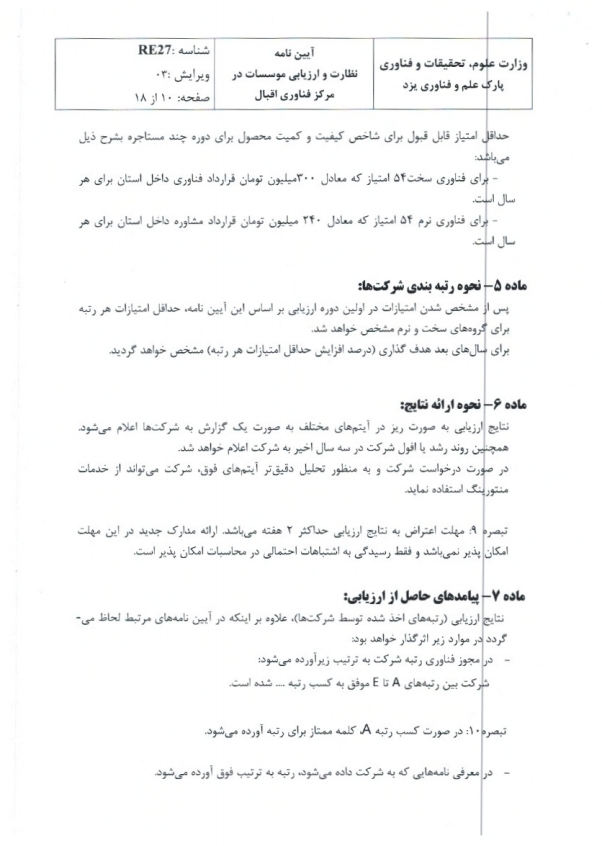 وزارت علوم، تحقیقات و فناوری
پارک علم و فناوری یزد
آیین نامه
نظارت و ارزیابی موسسات در
مرکز فناوری اقبال
شناسه :RE27
ویرایش :۰۳
صفحه: ۱۰ از ۱۸
حداقل امتیاز قابل قبول برای شاخص کیفیت و کمیت محصول برای دوره چند مستاجره بشرح ذیل
می‌باشد:
- برای فناوری سخت۵۴ امتیاز که معادل ۳۰۰میلیون تومان قرارداد فناوری داخل استان برای هر
سال است.
- برای فناوری نرم ۵۴ امتیاز که معادل ۲۴۰ میلیون تومان قرارداد مشاوره داخل استان برای هر
سال است.
ماده ۵- نحوه رتبه بندی شرکت‌ها:
پس از مشخص شدن امتیازات در اولین دوره ارزیابی بر اساس این آیین نامه، حداقل امتیازات هر رتبه
برای گروه‌های سخت و نرم مشخص خواهد شد.
برای سال‌های بعد هدف گذاری (درصد افزایش حداقل امتیازات هر رتبه) مشخص خواهد گردید.
ماده ۶- نحوه ارائه نتایج:
نتایج ارزیابی به صورت ریز در آیتم‌های مختلف به صورت یک گزارش به شرکت‌ها اعلام می‌شود.
همچنین روند رشد یا افول شرکت در سه سال اخیر به شرکت اعلام خواهد شد.
در صورت درخواست شرکت و به منظور تحلیل دقیق‌تر آیتم‌های فوق، شرکت می‌تواند از خدمات
منتورینگ استفاده نماید.
تبصره ۹: مهلت اعتراض به نتایج ارزیابی حداکثر ۲ هفته می‌باشد. ارائه مدارک جدید در این مهلت
امکان پذیر نمی‌باشد و فقط رسیدگی به اشتباهات احتمالی در محاسبات امکان پذیر است.
ماده ۷- پیامدهای حاصل از ارزیابی:
نتایج ارزیابی (رتبه‌های اخذ شده توسط شرکت‌ها)، علاوه بر اینکه در آیین نامه‌های مرتبط لحاظ می-
گردد در موارد زیر اثرگذار خواهد بود:
- در مجوز فناوری رتبه شرکت به ترتیب زیرآورده می‌شود:
شرکت بین رتبه‌های A تا E موفق به کسب رتبه .... شده است.
تبصره۱۰: در صورت کسب رتبه A، کلمه ممتاز برای رتبه آورده می‌شود.
- در معرفی نامه‌هایی که به شرکت داده می‌شود، رتبه به ترتیب فوق آورده می‌شود.